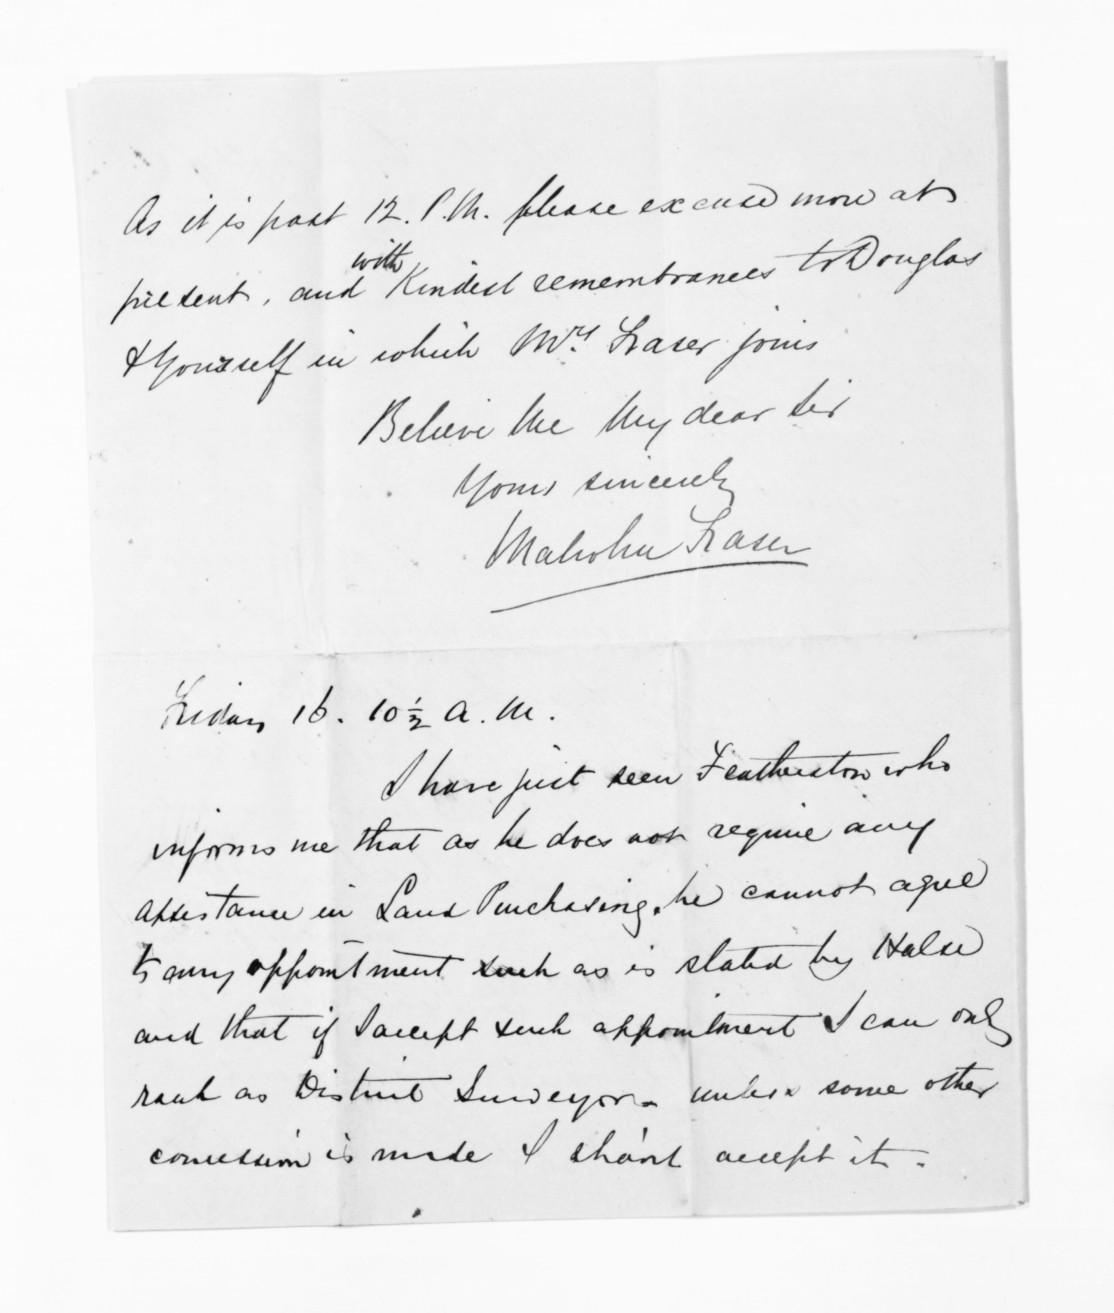 As it is past 12. P.M. please excuse more at
present, and with Kindest remembrances to Douglas
& Yourself in which Mrs Fraser joins
Believe Me My dear Sir
Yours sincerely
Malcolm Fraser
Friday 16. 10½ A.M.
I have just seen Featherston who
informs me that as he does not require any
assistance in Land Purchasing, he cannot agree
to any appointment such as is stated by Halse
and that if I accept such appointment I can only
rank as District Surveyor - unless some other
concession is made I shan't accept it -